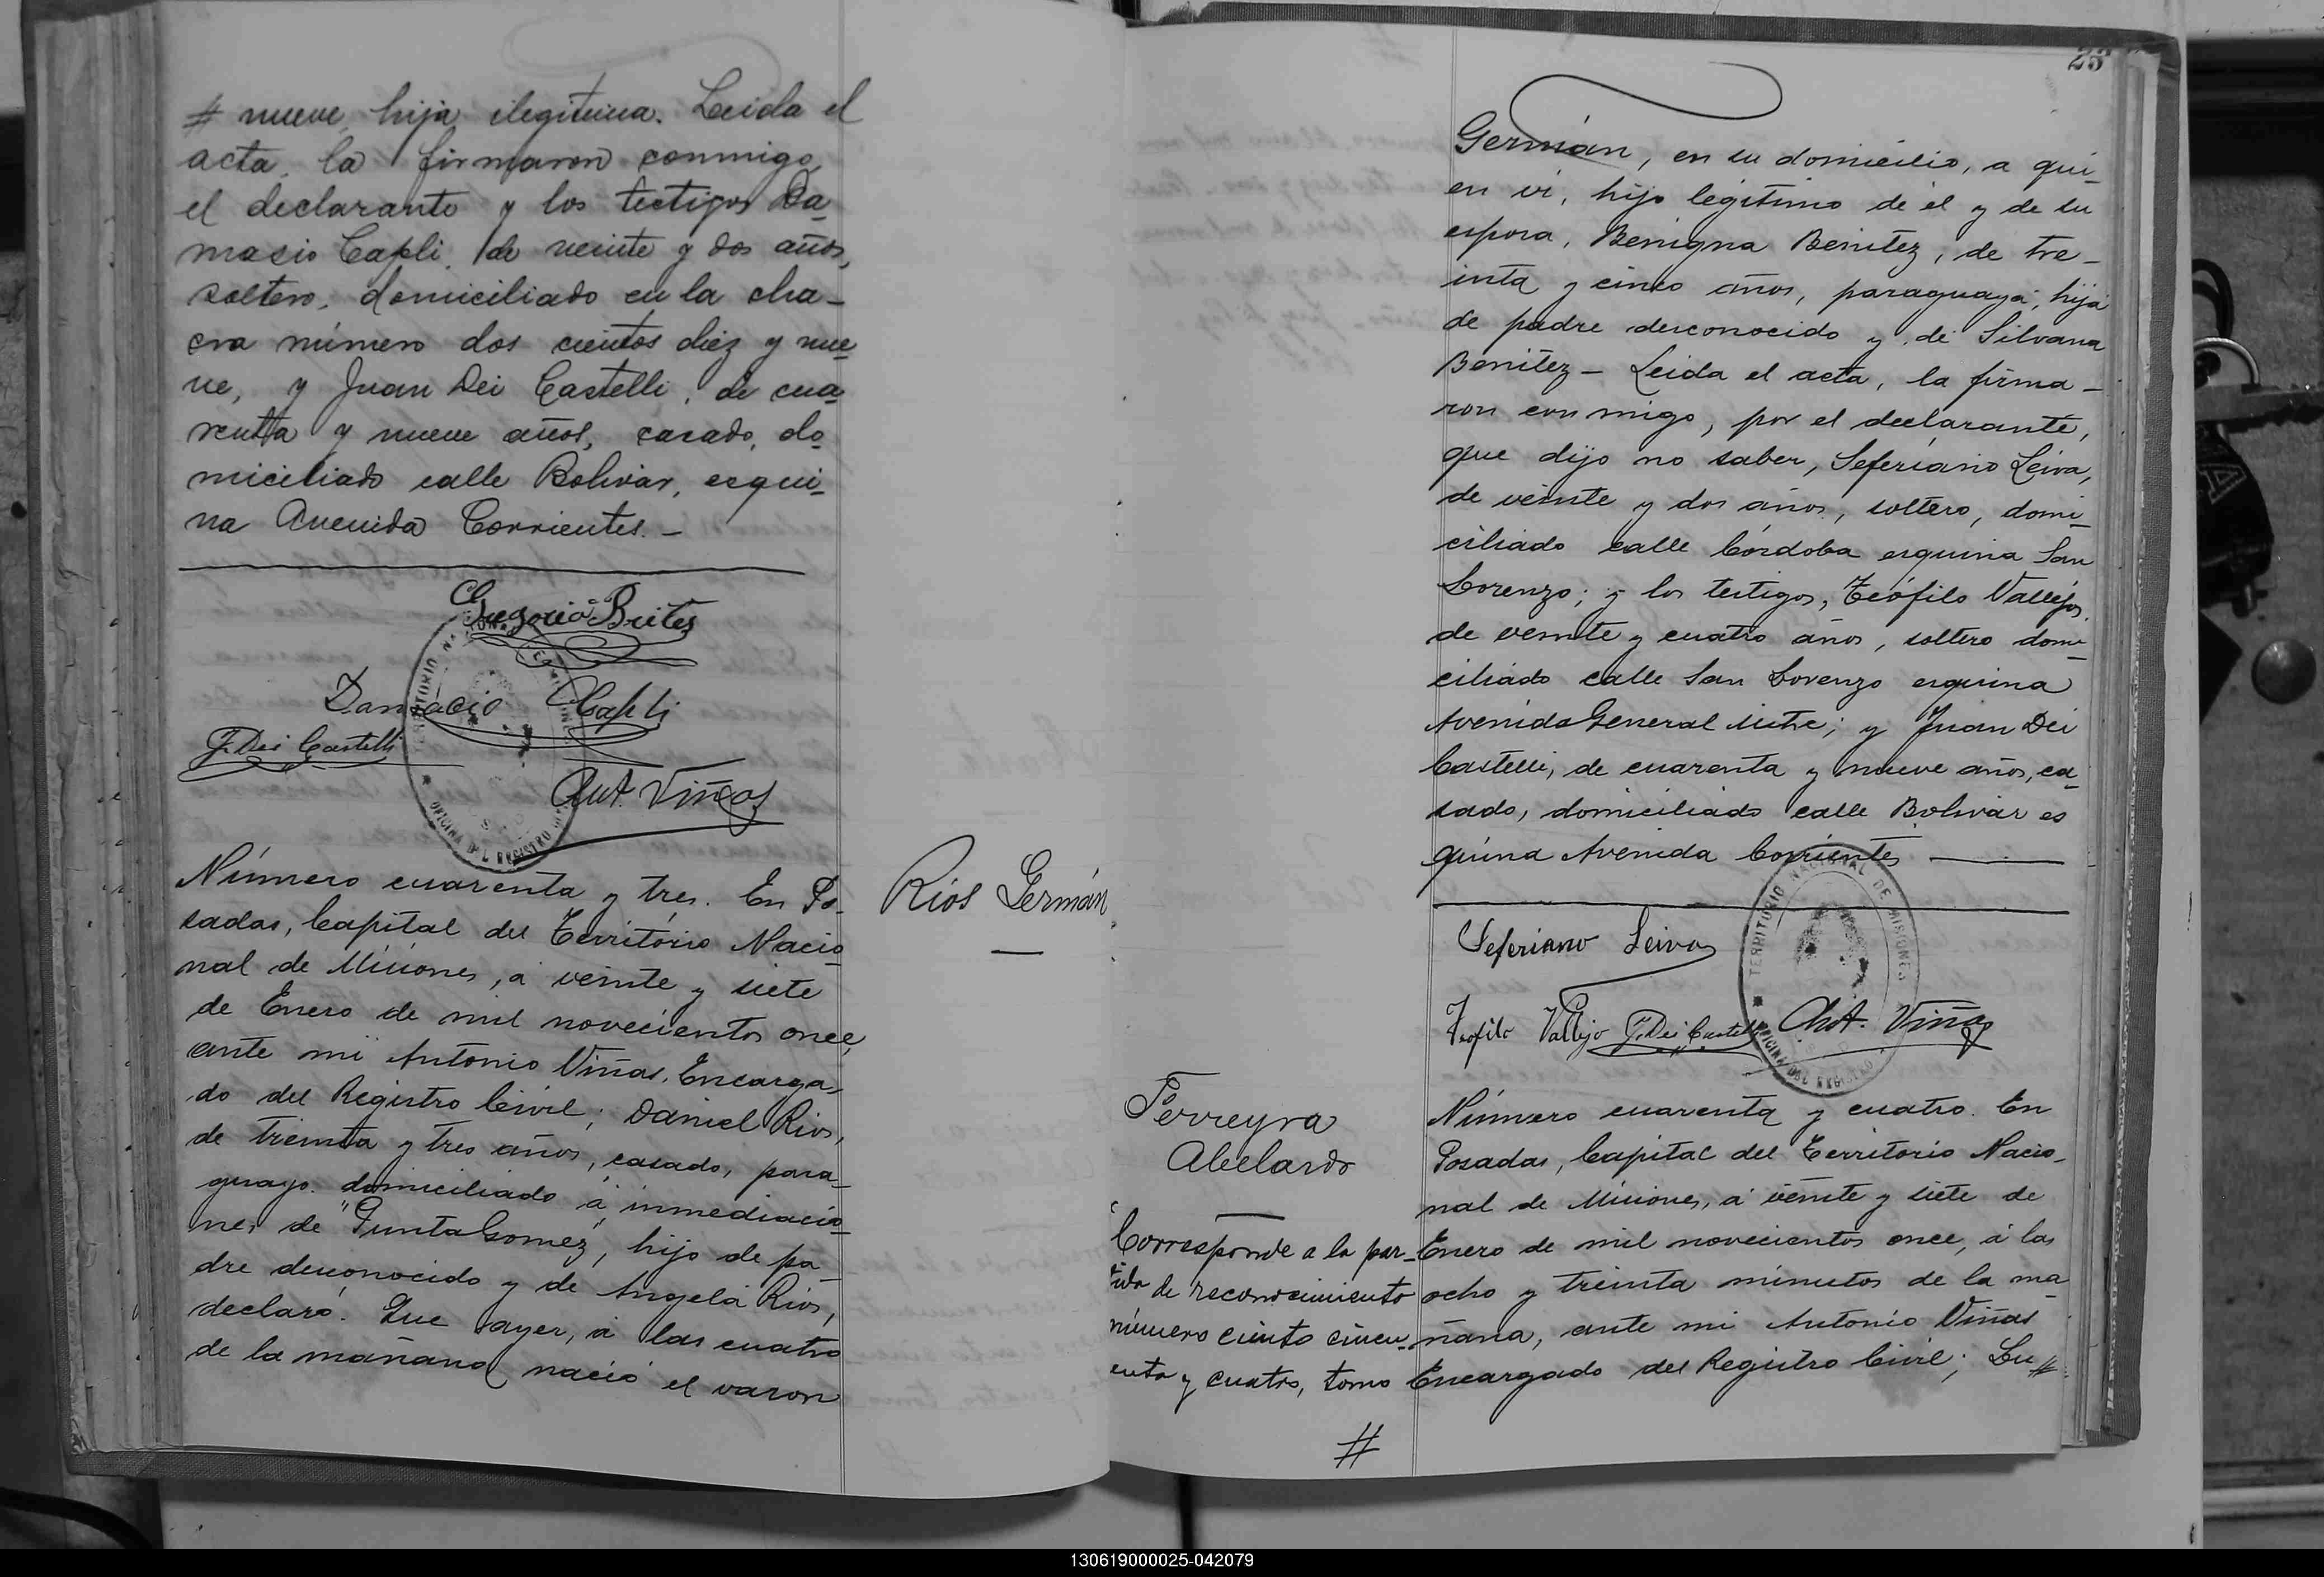 # nueve, hija ilegitima. Leida el
acta, la firmaron conmigo,
el declarante y los testigos Da-
masio Capli, de veinte y dos años,
soltero, domiciliado en la cha-
cra número dos cientos diez y nue-
ve, y Juan Dei Castelli, de cua-
renta y nueve años, casado, do-
miciliado calle Bolivar, esqui-
na Avenida Corrientes. -
Gregorio Brites
Damacio Capli
J. Dei Castelli
Ant. Viñas
TERRITORIO NACIONAL DE MISIONES
OFICINA DEL REGISTRO
Número cuarenta y tres. En Po-
sadas, Capital del Território Nacio-
nal de Misiones, á veinte y siete
de Enero de mil novecientos once,
ante mi Antonio Viñas, Encarga-
do del Registro Civil; Daniel Rios,
de treinta y tres años, casado, para-
guayo, domiciliado á inmediacio-
nes de "Punta Gomez", hijo de pa-
dre desconocido y de Angela Rios,
declaró: Que ayer, á las cuatro
de la mañana nació el varon
Rios Germán
25
Germán, en su domicilio, a qui-
en vi, hijo legítimo de él y de su
esposa, Benigna Benitez, de tre-
inta y cinco años, paraguaya, hija
de padre desconocido y de Silvana
Benitez - Leida el acta, la firma-
ron con migo, por el declarante,
que dijo no saber, Seferiano Leiva,
de veinte y dos años, soltero, domi-
ciliado calle Córdoba esquina San
Lorenzo; y los testigos, Teófilo Vallejos,
de veinte y cuatro años, soltero domi-
ciliado calle San Lorenzo esquina
Avenida General Mitre; y Juan Dei
Castelli, de cuarenta y nueve años, ca-
sado, domiciliado calle Bolivar es
quina Avenida Corrientes
Seferiano Leiva
Teofilo Vallejo J. Dei Castelli Ant. Viñas
TERRITORIO NACIONAL DE MISIONES
OFICINA DEL REGISTRO
Ferreyra
Abelardo
Corresponde a la par-
tida de reconocimiento
número ciento cincu-
enta y cuatro, tomo
#
Número cuarenta y cuatro. En
Posadas, Capital del Territorio Nacio-
nal de Misiones, á veinte y siete de
Enero de mil novecientos once, á las
ocho y treinta minutos de la ma
ñana, ante mi Antonio Viñas
Encargado del Registro Civil; Lu #
130619000025-042079